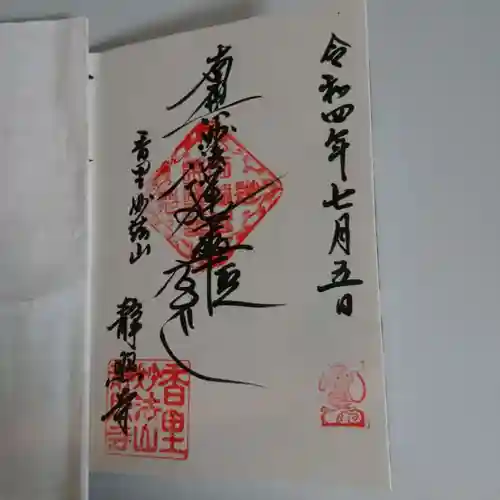 令和四年七月五日
南無妙法蓮華経
香里妙法山
静照寺
香里
妙法山